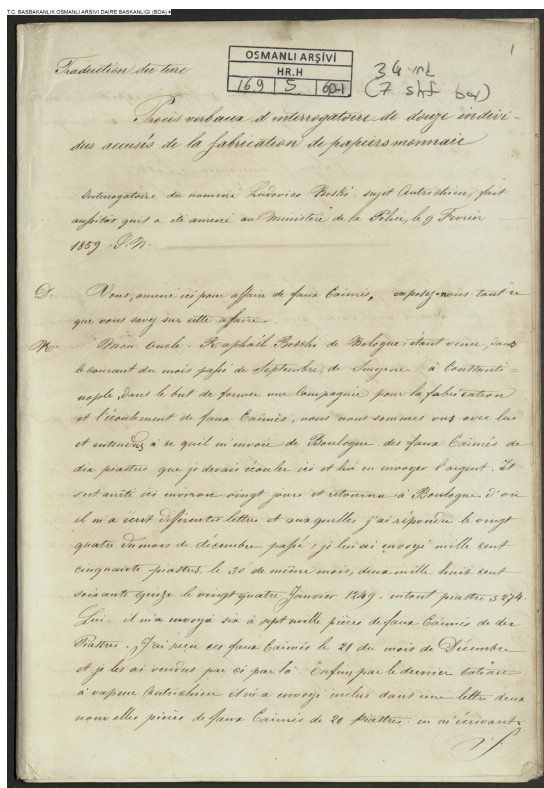 T.C. BAŞBAKANLIK OSMANLI ARŞİVİ DAİRE BAŞKANLIĞI (BOA)
1
OSMANLI ARŞİVİ
HR.H
169 5 60-1
34
(7
Traduction du turc
Procès verbaux d'interrogatoire de douze indivi-
dus accusés de la fabrication de papiers monnaie
Interrogatoire du nommé Ludovico Boski sujet Autrichien, fait
aussitôt qu'il a été amené au Ministère de la Police, le 9 Fevrier
1859
D. Vous, amené ici pour affaire de faux Caïmés, exposez-nous tout ce
que vous savez sur cette affaire
R. Mon oncle Raphaël de Bologne étant venu, dans
le courant du mois passé de Septembre, de Smyrne à Constanti-
nople, dans le but de former une Compagnie pour la fabrication
et l'écoulement de faux Caïmés, nous nous sommes vus avec lui
et entendus à ce qu'il m'envoie de Boulogne des faux Caïmés de
dix piastres que je devais écouler ici et lui en envoyer l'argent. Il
est resté ici environ vingt jours et retourna à Boulogne d'où
il m'a écrit différentes lettres et auxquelles j'ai répondu le vingt
quatre du mois de décembre passé; je lui ai envoyé mille cent
cinquante piastres, le 30 de même mois, deux mille huit cent
soixante quinze le vingt quatre Janvier 1249. entout piastre 5274
Lui, il m'a envoyé six à sept mille pièces de faux Caïmés de dix
Piastres. J'ai reçu ces faux Caïmés le 21 du mois de Décembre
et je les ai vendus par ci par là. Enfin, par le dernier bateau
à vapeur Autrichien il m'a envoyé inclus dans une lettre deux
nouvelles pièces de faux Caïmés de 20 Piastres en m'écrivant